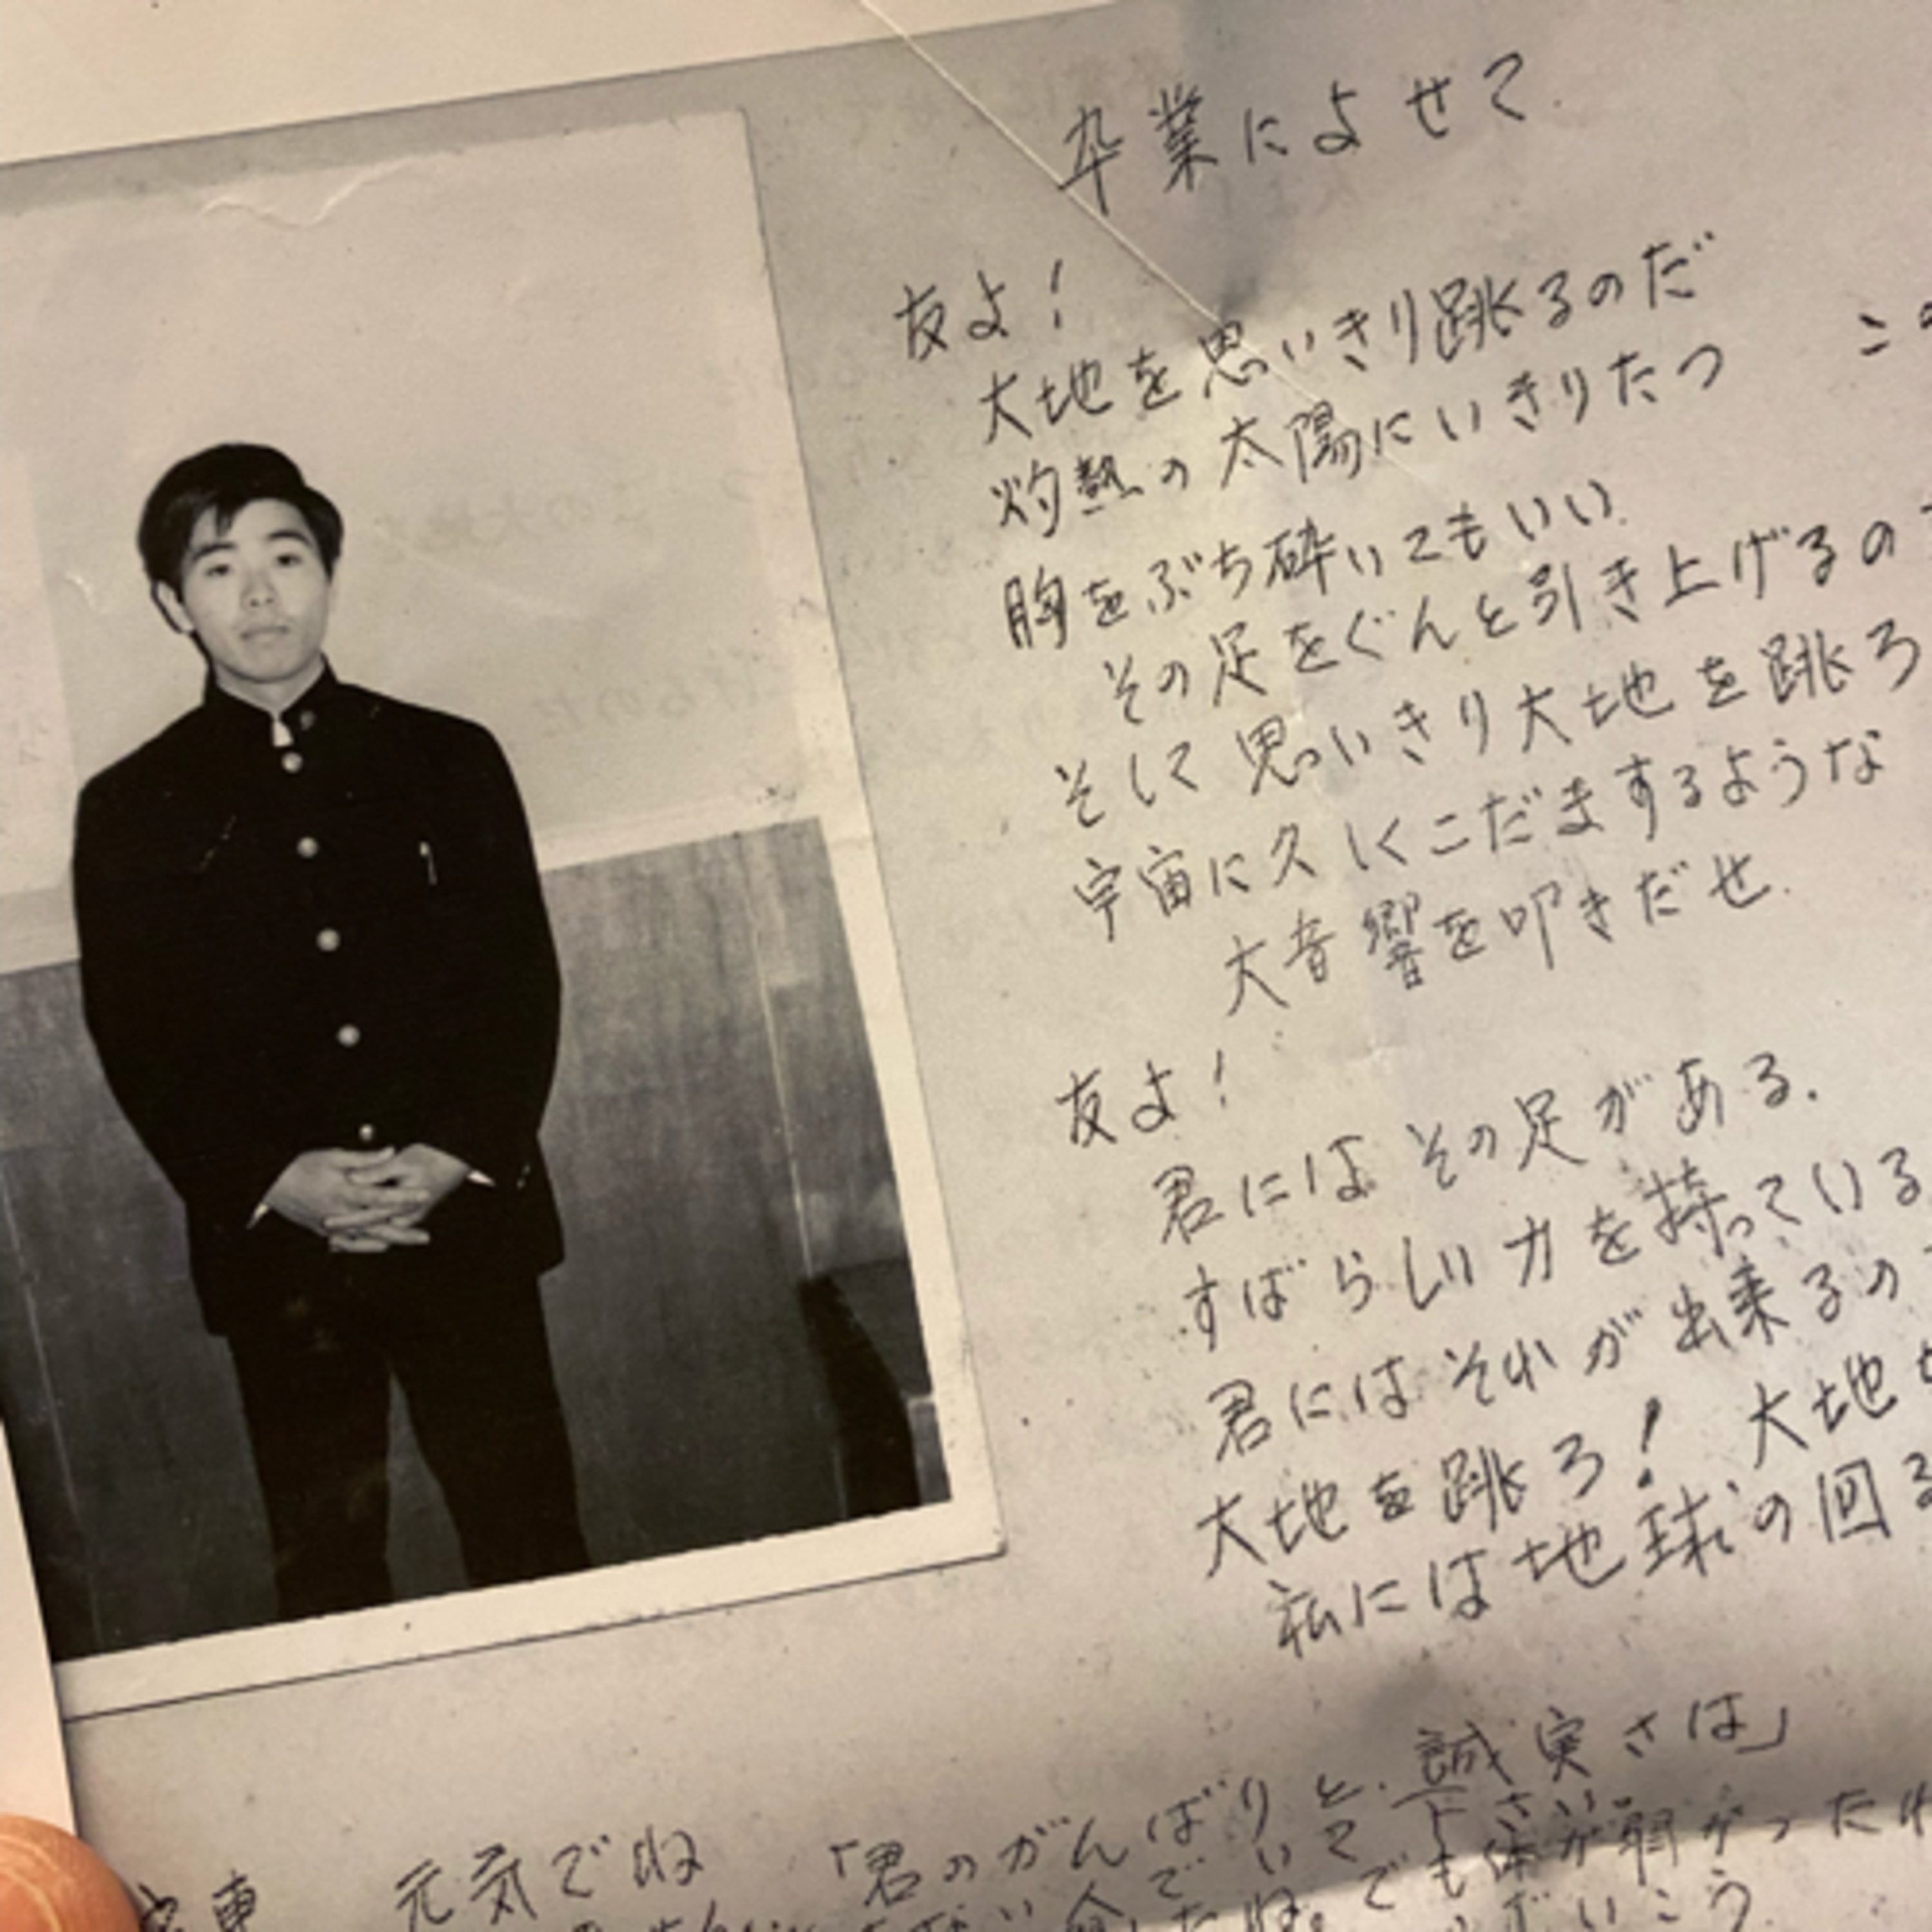 卒業によせて
友よ!
大地を思いきり跳るのだ
灼熱の太陽にいきりたつ この
胸をぶち砕いてもいい
その足をぐんと引き上げるの
そして思いきり大地を跳ろ
宇宙に久しくこだまするような
大音響を叩きだせ
友よ!
君にはその足がある.
すばらしい力を持っている
君にはそれが出来るの
大地を跳ろ! 大地を
私には地球の回る
元気でね 「君のがんばりと、誠実さは」
下さい。
でも体が弱かったね